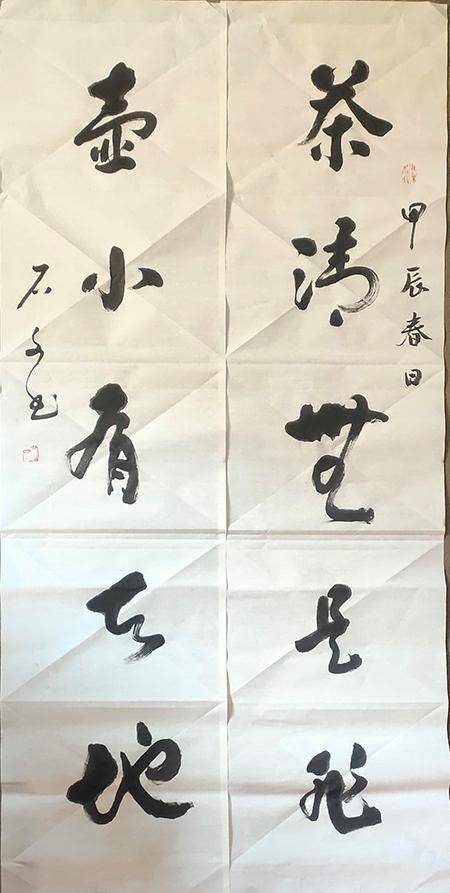 甲辰春日
茶清無是非
壺小有天地
石书